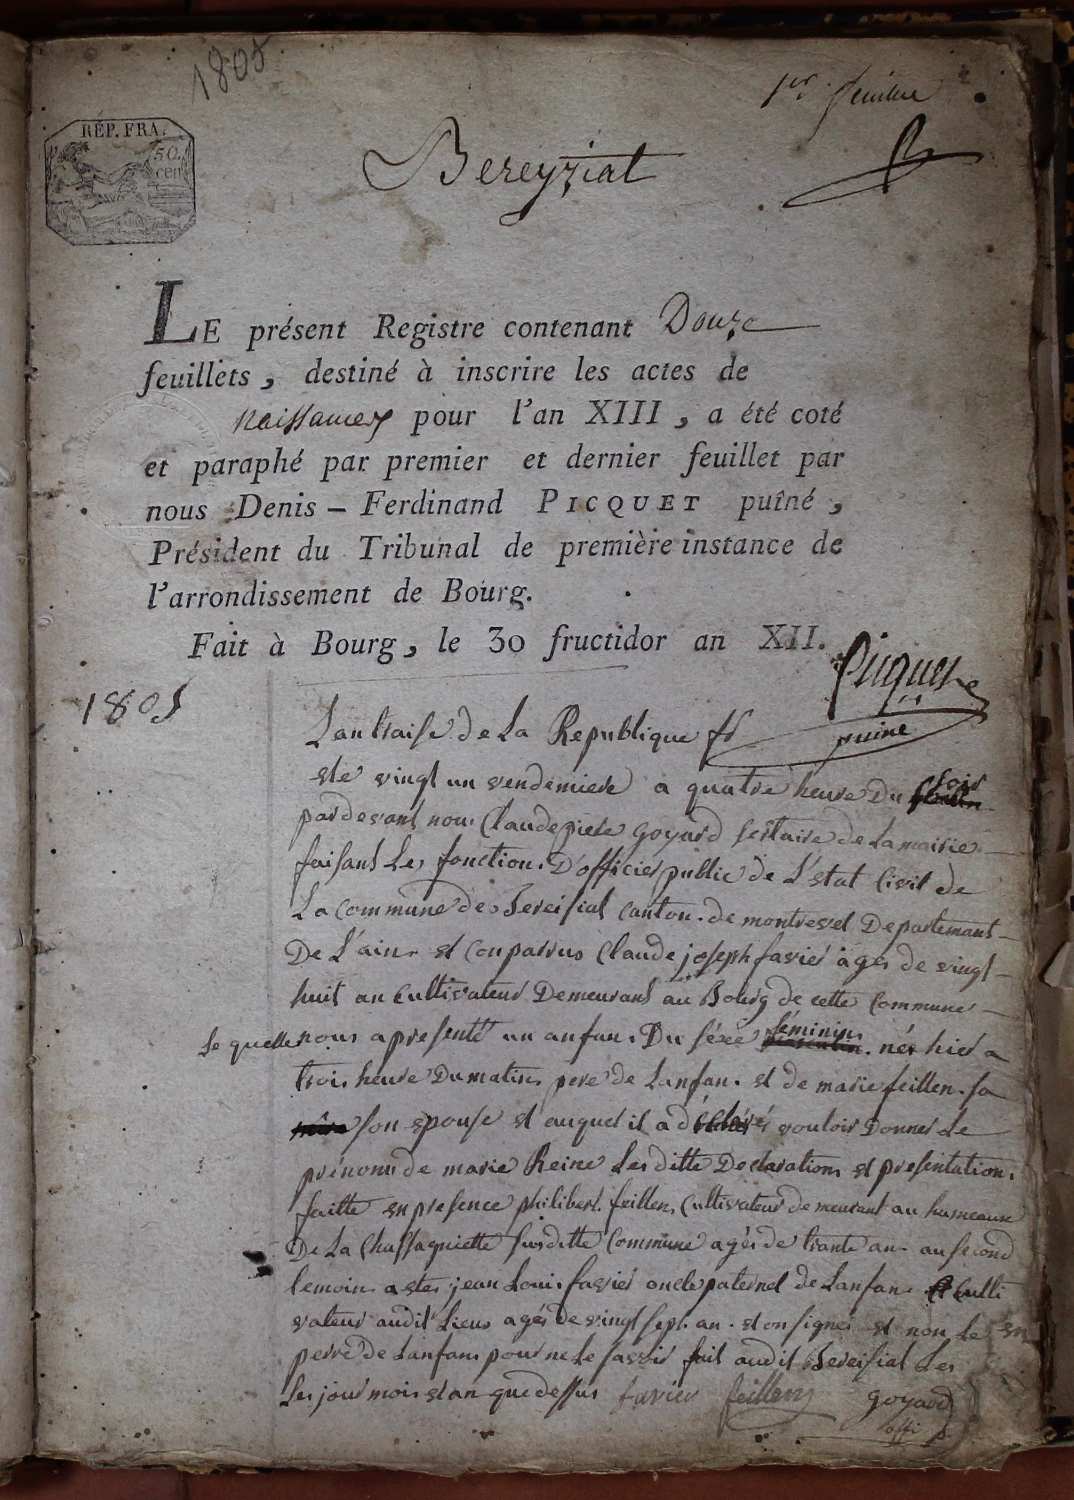 1805
1er feuillet
RÉP. FRA.
50
cen
Bereyziat
LE présent Registre contenant Douze
feuillets, destiné à inscrire les actes de
naissances pour l'an XIII, a été coté
et paraphé par premier et dernier feuillet par
nous Denis – Ferdinand PICQUET puîné,
Président du Tribunal de première instance de
l'arrondissement de Bourg.
Fait à Bourg, le 30 fructidor an XII.
Picquet
puiné
1805
Lan traise de La Republique fr
ste vingt un vendemiere a quatre heure Du soir
pardevant nous Claude piere Goyard sertaire de La mairie
faisant Les fonction D'officier public de L'etat Civil de
La Commune de Bereisiat canton de montrevel Departemant
De L'ain et Conparrus Claude joseph favier ages de vingt
huit an Cultivateur Demeurant au Bourg de cette Commune
le quelle nous apresenté un anfan Du séxe féminin née hier a
trois heure Du matin pere de Lanfan et de marie feillen sa
son epouse et auquel il a déclarés vouloir Donner Le
prenoms de marie Reine Les ditte Declaration et presentation
faitte en presence philibert feillen Cultivateur demeurant au hameaux
De La Chassagniette susditte Commune agés de trante an au second
temoin a ete jean Louis favier oncle paternel de Lanfan Culti
vateur audit Lieux agés de vingt sept an et on signer et non Le
perre de Lanfan pour ne Le savoir fait audit Bereisiat Les
Les jour mois et an que dessus favier feillen Goyard
offi p